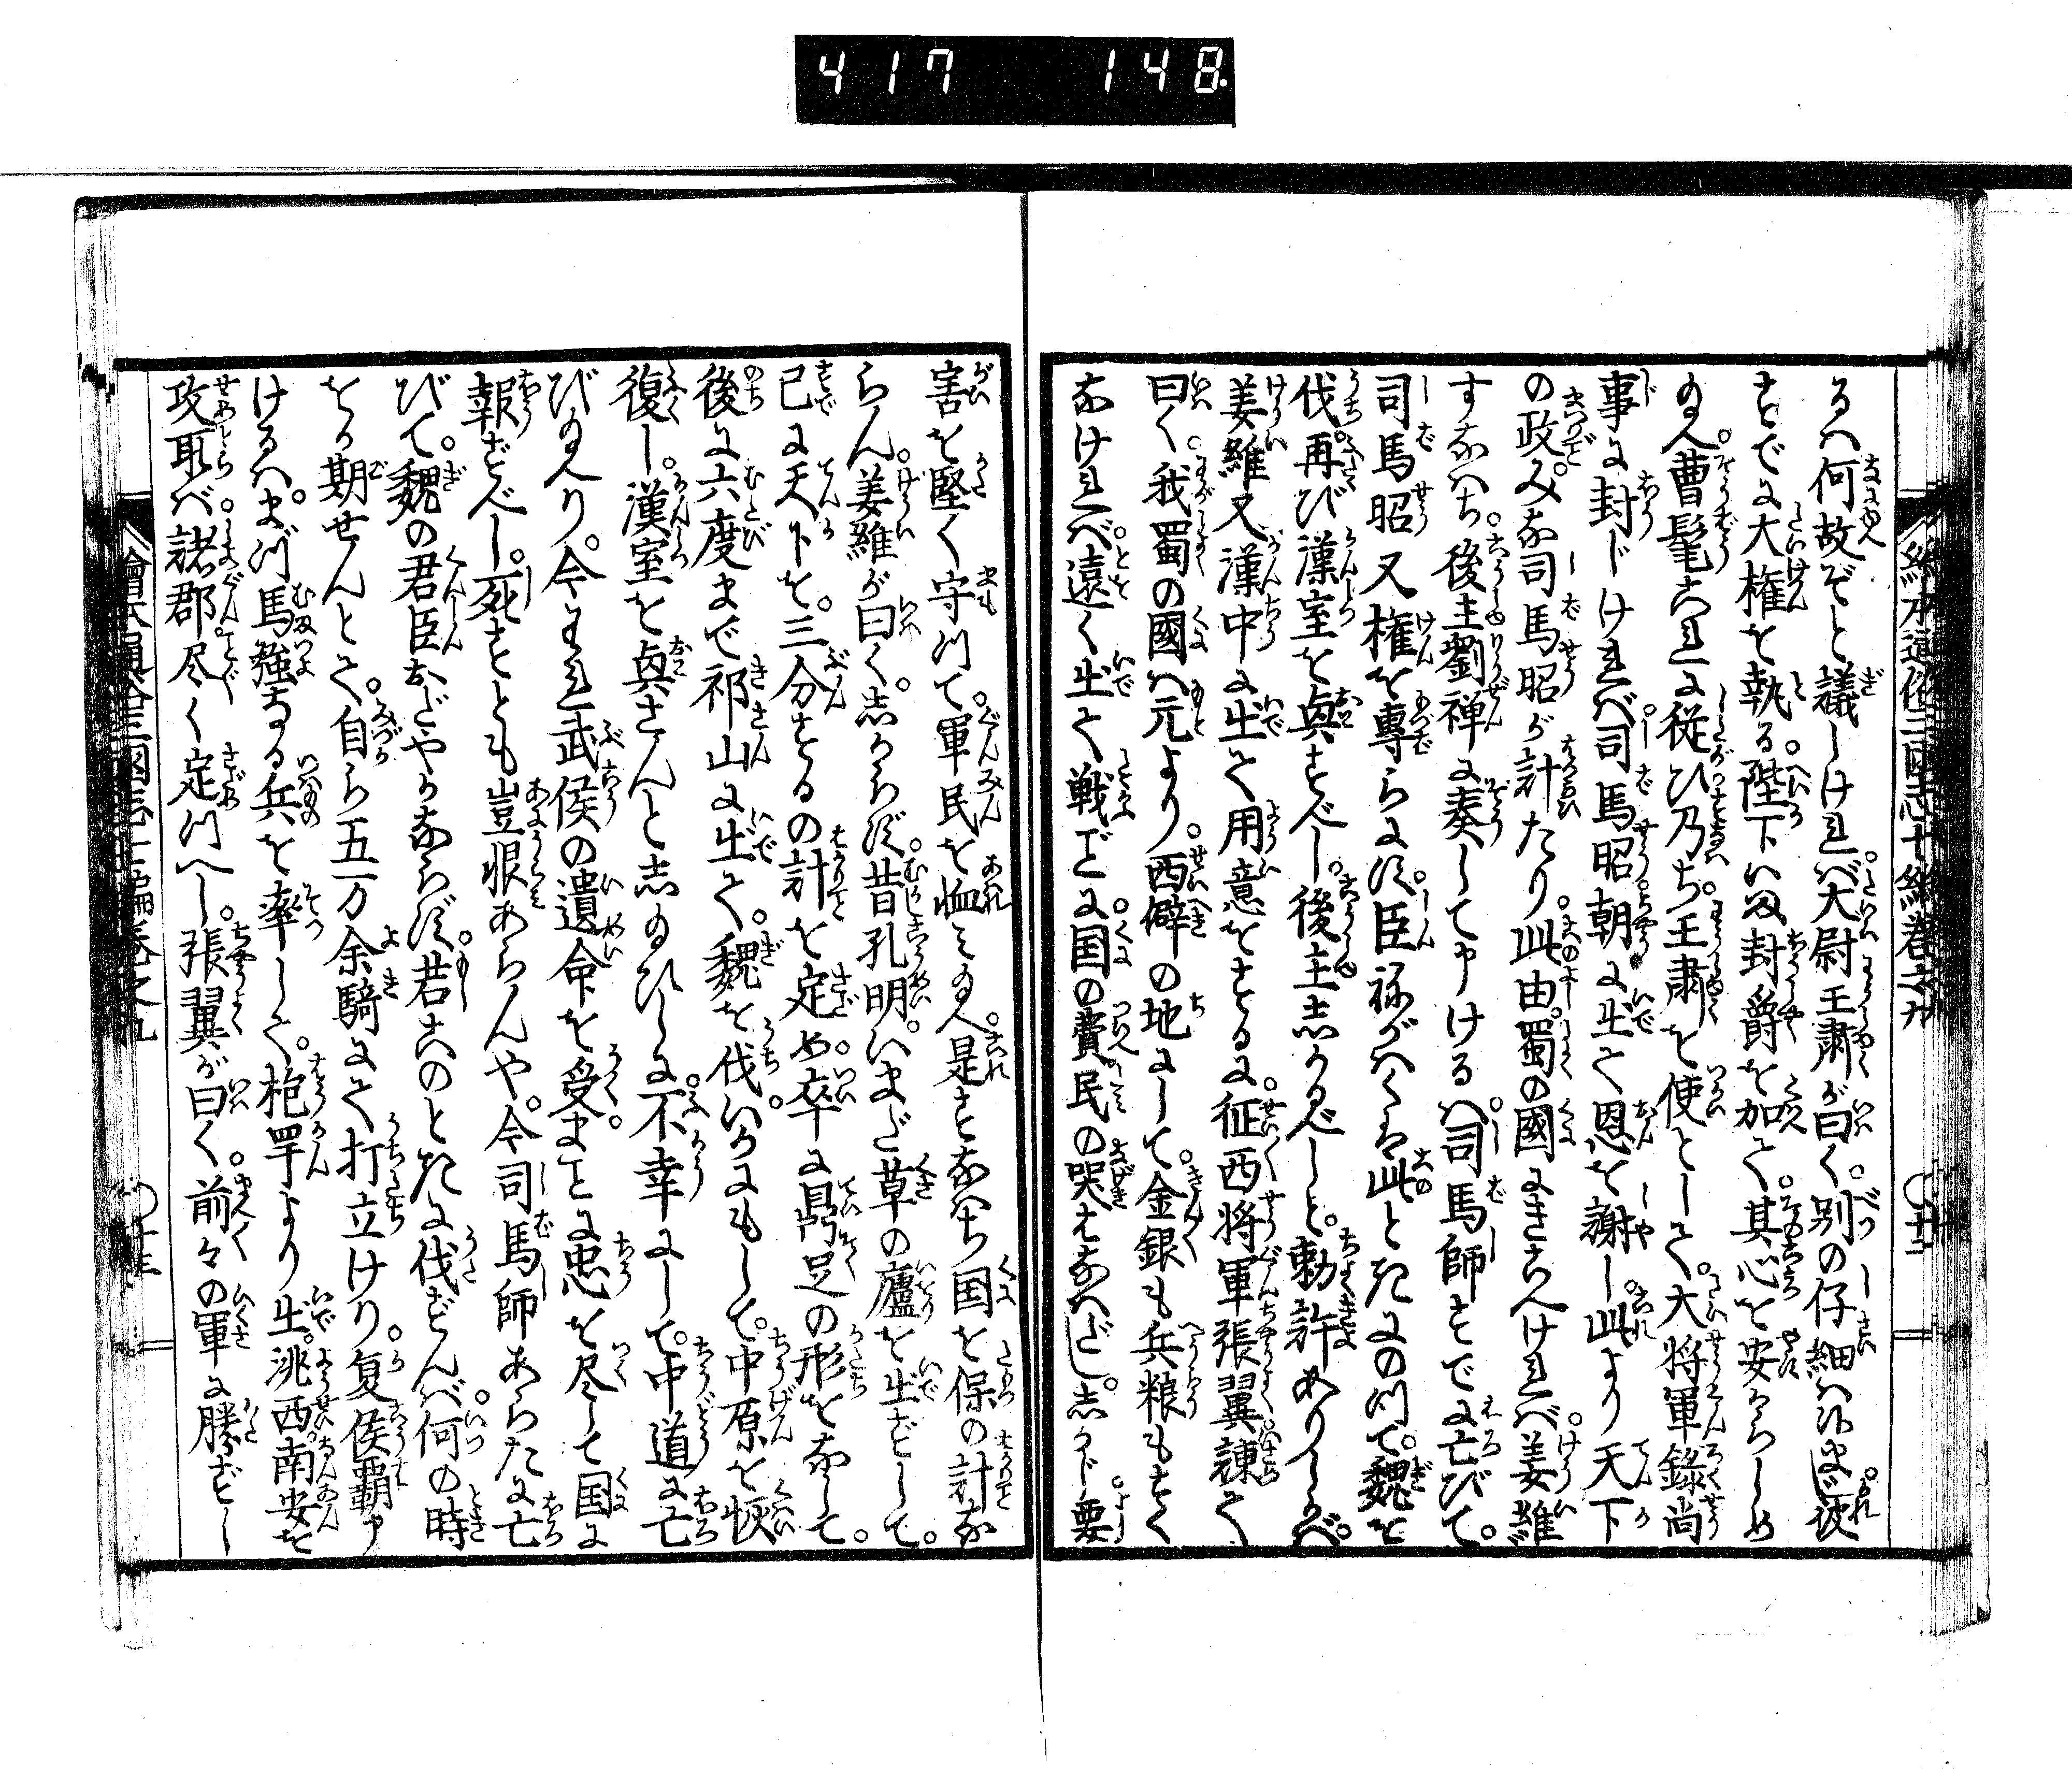 417 148
繪本通俗三國志十編卷之九
るハ何故ぞと議しけれバ大尉王肅が曰く別の仔細ハ候まじ彼
すでに大権を執る陛下いま封爵を加て其心を安からしめ
給へ曹髦これに従ひ乃ち王肅を使として大将軍錄尚
事に封ドけれバ司馬昭朝に出て恩を謝し此より天下
の政みな司馬昭が計たり此由蜀の國にきこへけれバ姜維
すなハち後主劉禅に奏して申けるハ司馬師すでに亡びて
司馬昭又権を專らにす臣ねがハくは此ときにのつて魏を
伐再び漢室を興すべし後主しかるべしと勅許ありしかバ
姜維又漢中に出て用意をするに征西将軍張翼諫て
曰く我蜀の國ハ元より西僻の地にして金銀も兵粮もすく
なけれバ遠く出て戦ごとに国の費民の哭たへがたししかじ要
害を堅く守つて軍民を恤ミ給へ是すなハち国を保の計な
らん姜維が曰くしからず昔孔明いまだ草の廬を出ずして
已に天下を三分するの計を定め卒に鼎足の形をなして
後に六度まで祁山に出て魏を伐いかにもして中原を恢
復し漢室を興さんとし給ひしに不幸にして中道に亡
び給へり今われ武侯の遺命を受まことに忠を尽して国に
報ずべし死すとも豈恨あらんや今司馬師あらたに亡
びて魏の君臣おだやかならず若このときに伐ずんバ何の時
をか期せんとて自ら五万余騎にて打立けり夏侯覇申
けるハまづ馬強なる兵を率して枹罕より出洮西南安を
攻取バ諸郡尽く定つべし張翼が曰く前々の軍に勝ずし
繪本通俗三國志十編卷之九